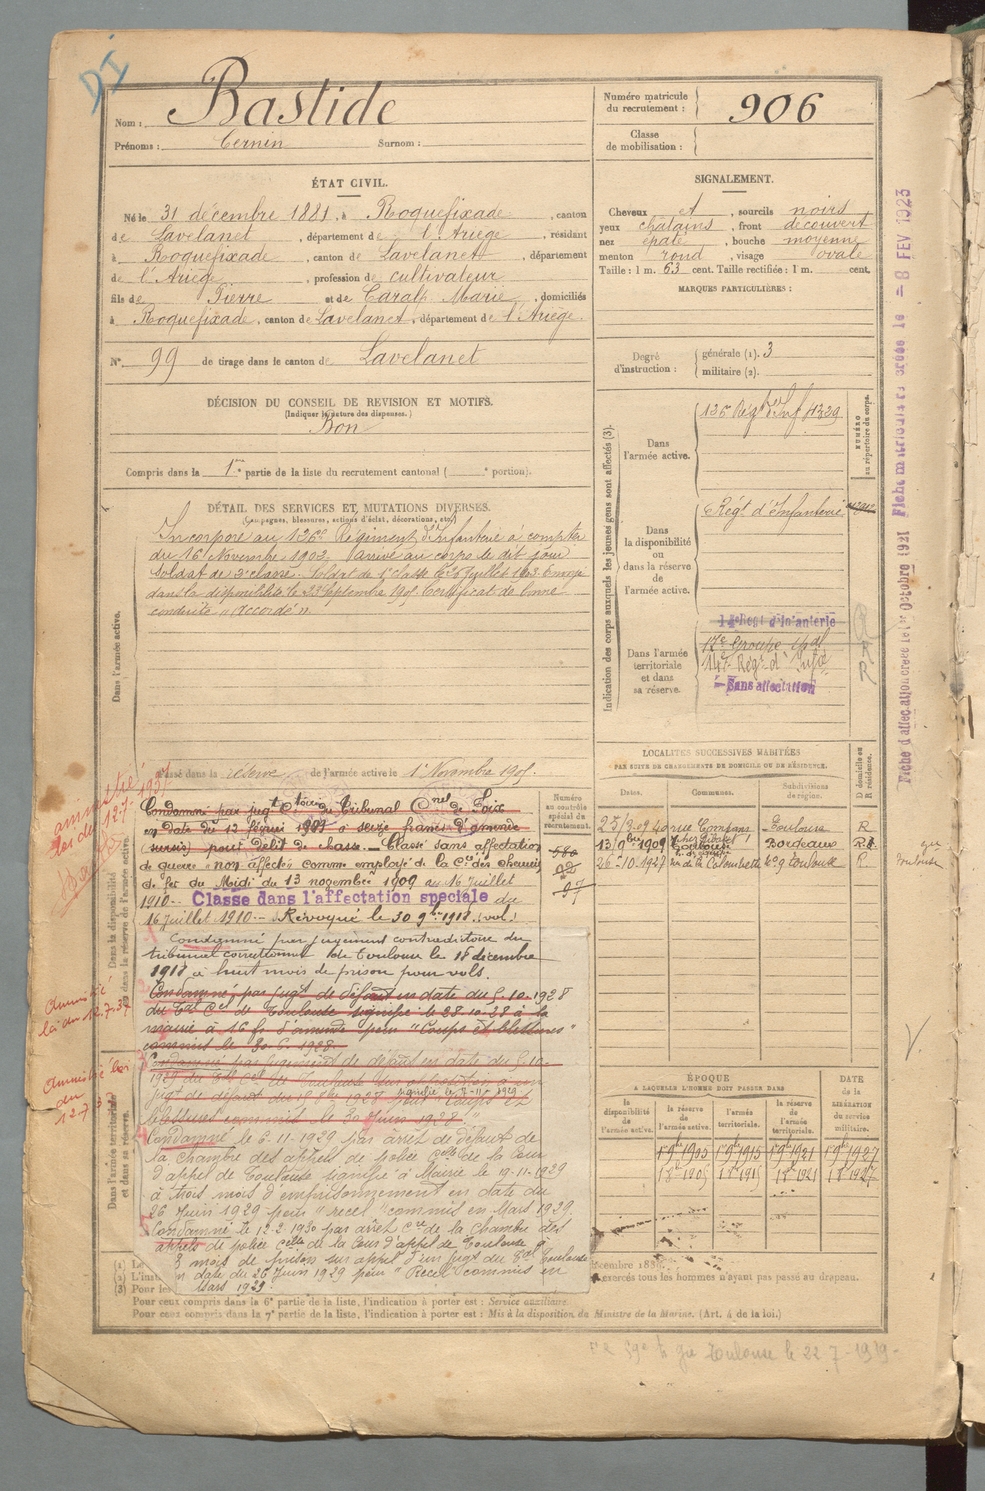 DI
Nom : Bastide
Prénoms : Cernin Surnom :
Numéro matricule du recrutement : 906
Classe de mobilisation :
ÉTAT CIVIL.
Né le 31 décembre 1881, à Roquefixade, canton
de Lavelanet, département de l'Ariège, résidant
à Roquefixade, canton de Lavelanet, département
de l'Ariège, profession de cultivateur
fils de Pierre et de Caralp Marie, domiciliés
à Roquefixade, canton de Lavelanet, département de l'Ariège.
N° 99 de tirage dans le canton de Lavelanet
SIGNALEMENT.
Cheveux et, sourcils noirs
yeux châtains, front découvert
nez épaté, bouche moyenne
menton rond, visage ovale
Taille : 1 m. 63 cent. Taille rectifiée : 1 m. cent.
MARQUES PARTICULIÈRES :
Degré d'instruction : générale (1). 3
militaire (2).
DÉCISION DU CONSEIL DE REVISION ET MOTIFS.
(Indiquer la nature des dispenses.)
Bon
Compris dans la 1re partie de la liste du recrutement cantonal ( e portion).
DÉTAIL DES SERVICES ET MUTATIONS DIVERSES.
(Campagnes, blessures, actions d'éclat, décorations, etc.)
Dans l'armée active.
Incorporé au 126e Régiment d'Infanterie à compter
du 16 Novembre 1902. Arrivé au corps le dit jour
Soldat de 2e classe. Soldat de 1e classe le 26 Juillet 1903. Envoyé
dans la disponibilité le 23 Septembre 1905. Certificat de bonne
conduite "Accordé".
Passé dans la réserve de l'armée active le 1er Novembre 1905.
Indication des corps auxquels les jeunes gens sont affectés (3).
Dans l'armée active.
126 Régt d'Inf 4329
NUMÉRO au répertoire du corps.
Dans la disponibilité ou dans la réserve de l'armée active.
Régt d'Infanterie
Dans l'armée territoriale et dans sa réserve.
Régt d'Infanterie
17e Groupe spal
147 Régt d'Infie
Sans affectation
R
R
Fiche d'affectation créée le 1er Octobre 1921
Fiche matriculaire créée le - 8 FEV 1923
LOCALITÉS SUCCESSIVES HABITÉES
PAR SUITE DE CHANGEMENTS DE DOMICILE OU DE RÉSIDENCE.
Dates. Communes. Subdivisions de région. D domicile ou R résidence.
Toulouse R
13/9bre 1909 Toulouse Bordeaux R
26-10-1927 r. de la Colombette 69 Toulouse R
Toulouse
Dans la disponibilité ou dans la réserve de l'armée active.
Numéro au contrôle spécial du recrutement.
580
92
97
Condamné par jugt Ctoire du Tribunal Cnel de Foix
en date du 12 février 1909 à seize francs d'amende
(sursis) pour délit de chasse. Classé sans affectation
de guerre "non affecté" comme employé de la Cie des chemins
de fer du Midi du 13 novembre 1909 au 16 Juillet
1910. Classé dans l'affectation spéciale du
16 Juillet 1910. Révoqué le 30 9bre 1918 (vol)
Condamné par jugement contradictoire du
tribunal correctionnel de Toulouse le 18 décembre
1918 à huit mois de prison pour vols.
Condamné par jugt de défaut en date du 5.10.1928
du Tal Cel de Toulouse signifié le 28-10-28 à la
mairie à 16 fr. d'amende pour "Coups et blessures"
commis le 30-6-1928.
Condamné par jugement de défaut en date du 5-10-
1929 du Tal Cel de Toulouse sur opposition à un
signifié le 7-11-1929
blessures commis le 30 Juin 1928."
Condamné le 6-11-1929 par arrêt de défaut de
la chambre des appels de police Celle de la Cour
d'appel de Toulouse signifié à Mairie le 19-11-1929
à trois mois d'emprisonnement en date du
26 Juin 1929 pour "recel" commis en Mars 1929.
Condamné le 12-2-1930 par arrêt Cre de la Chambre des
appels de police Celle de la Cour d'appel de Toulouse à
3 mois de prison sur appel d'un jugt du Tal Toulouse
en date du 26 Juin 1929 pour "Recel" commis en
Mars 1929
Amnistié
loi du 12.7.1937
Amnistié
loi du 12.7.37
Amnistié loi
du
12.7.37
Dans l'armée territoriale et dans sa réserve.
ÉPOQUE
A LAQUELLE L'HOMME DOIT PASSER DANS
la disponibilité de l'armée active. la réserve de l'armée active. l'armée territoriale. la réserve de l'armée territoriale.
DATE de la LIBÉRATION du service militaire.
1 9bre 1905 1 9bre 1915 1 9bre 1921 1 9bre 1927
1 8bre 1905 1 8bre 1915 1 8bre 1921 1 8bre 1927
(1) Le
(2) L'inst
exercés tous les hommes n'ayant pas passé au drapeau.
(3) Pour les
Pour ceux compris dans la 6e partie de la liste, l'indication à porter est : Service auxiliaire.
Pour ceux compris dans la 7e partie de la liste, l'indication à porter est : Mis à la disposition du Ministre de la Marine. (Art. 4 de la loi.)
Toulouse le 22 7-1919-